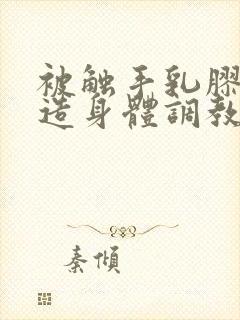 被触手乳膠
造身體調教
秦傾